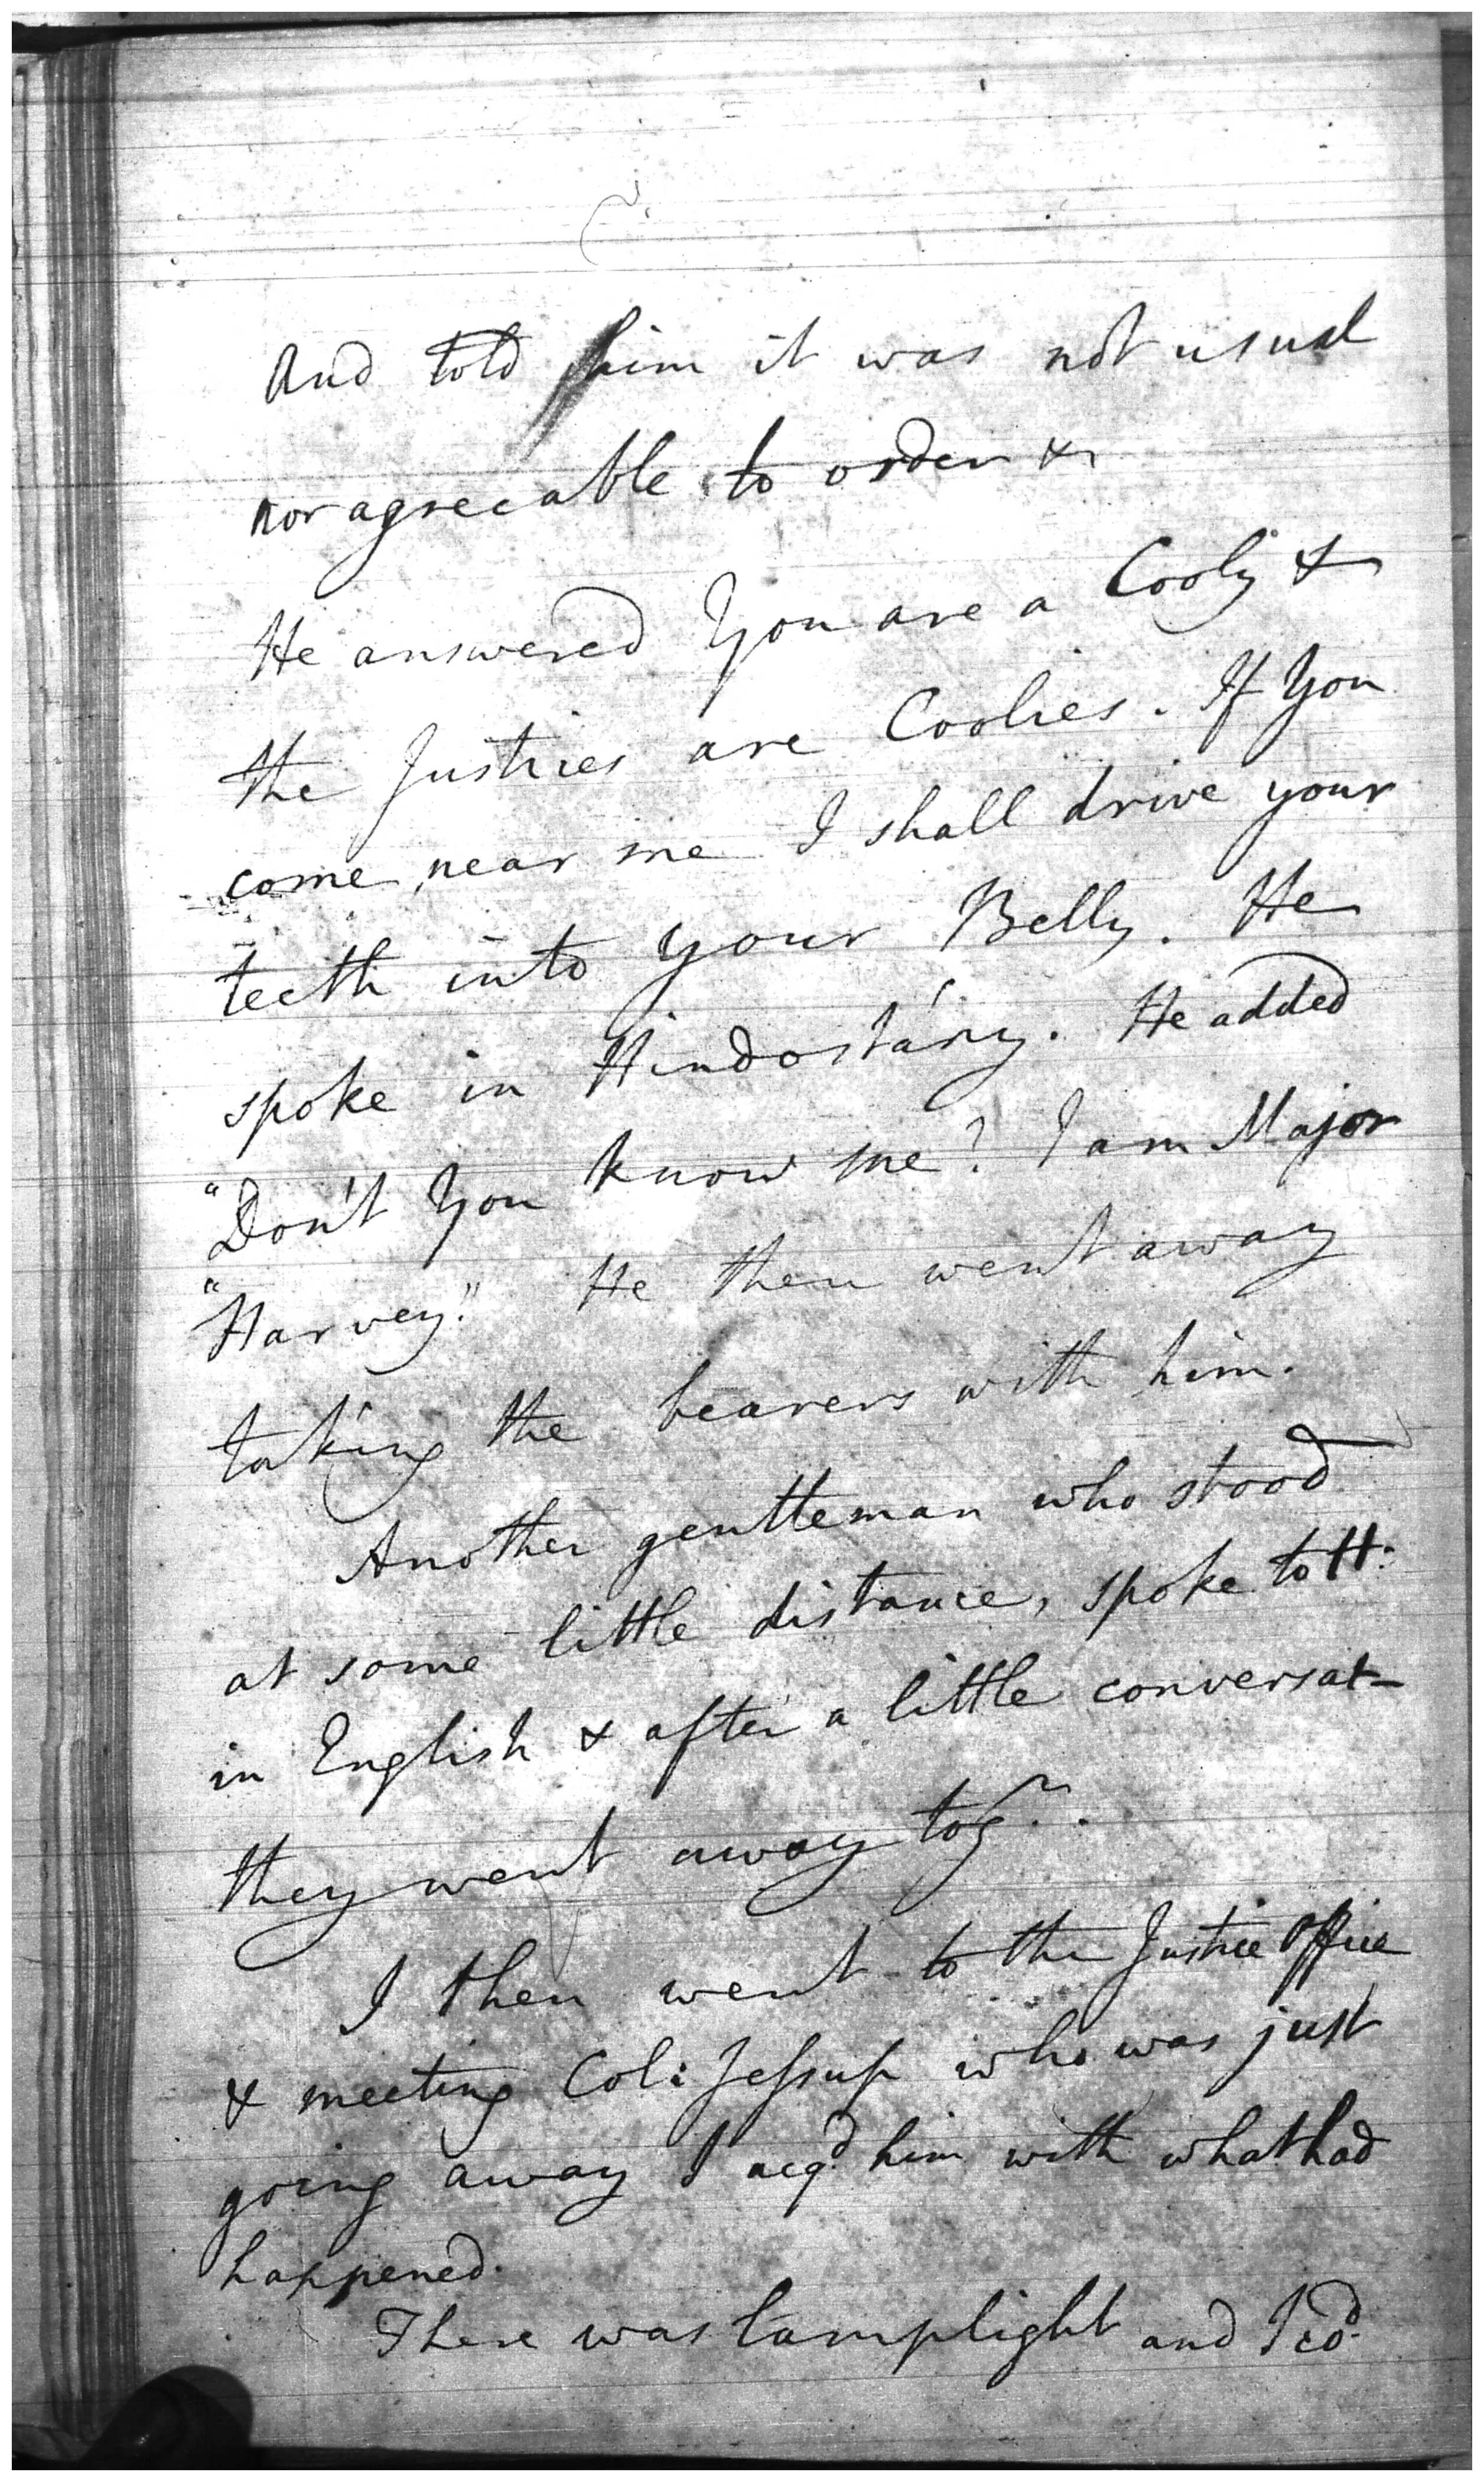 And told him it was not usual
nor agreeable to order &
He answered You are a Cooly &
the Justices are Coolies. If You
come near me I shall drive your
teeth into your Belly. He
spoke in Hindostány. He added
"Don't You know me? I am Major
"Harvey." He then went away
taking the bearers with him.
Another gentleman who stood
at some little distance, spoke to H:
in English & after a little conversat-
they went away togr.
I then went to the Justice Office
& meeting Col: Jessup who was just
going away I acqd him with what had
happened.
There was lamplight and I cd